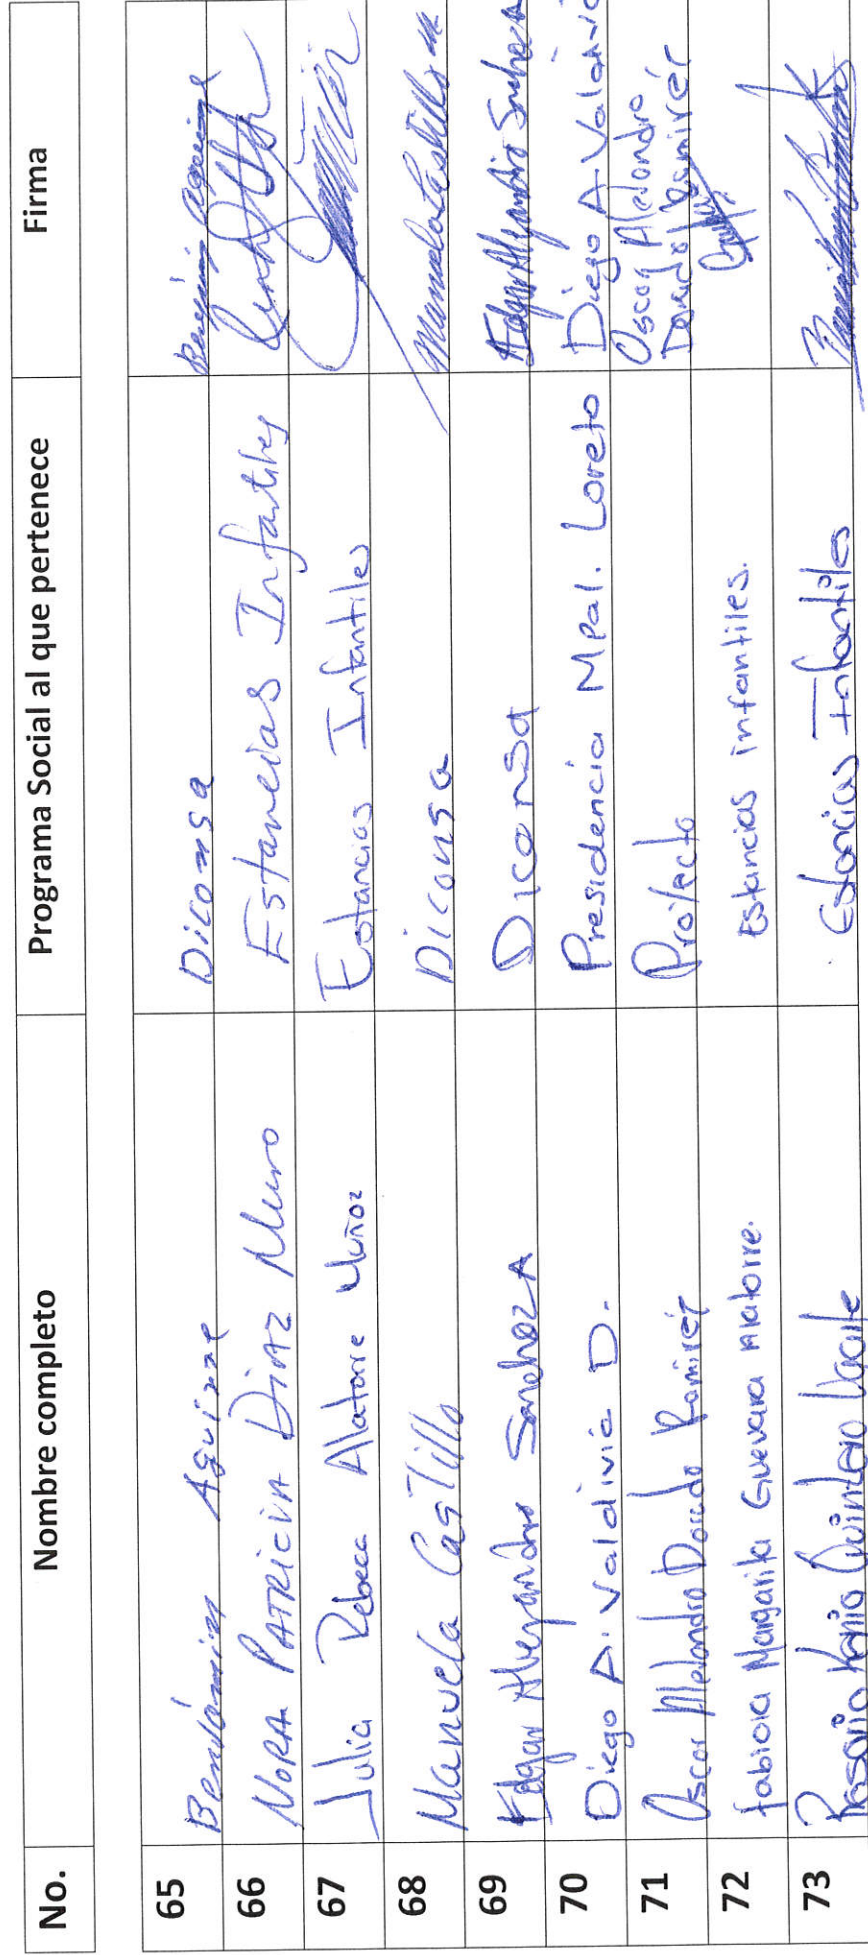 No. Nombre completo Programa Social al que pertenece Firma
65 Benjamin Aguirre Diconsa Benjamin Aguirre
66 NORA PATRICIA DIAZ Muro Estancias Infantiles
67 Julia Rebeca Alatorre Muñoz Estancias Infantiles
68 Manuela Castillo Diconsa Manuela Castillo
69 Edgar Alejandro Sanchez A Diconsa Edgar Alejandro Sanchez A
70 Diego A. Valdivia D. Presidencia Mpal. Loreto Diego A Valdivia
71 Oscar Alejandro Dorado Ramirez Proyecto Oscar Alejandro
Dorado Ramirez
72 Fabiola Margarita Guevara Alatorre. Estancias infantiles.
73 Rosario Quintero Estancias Infantiles